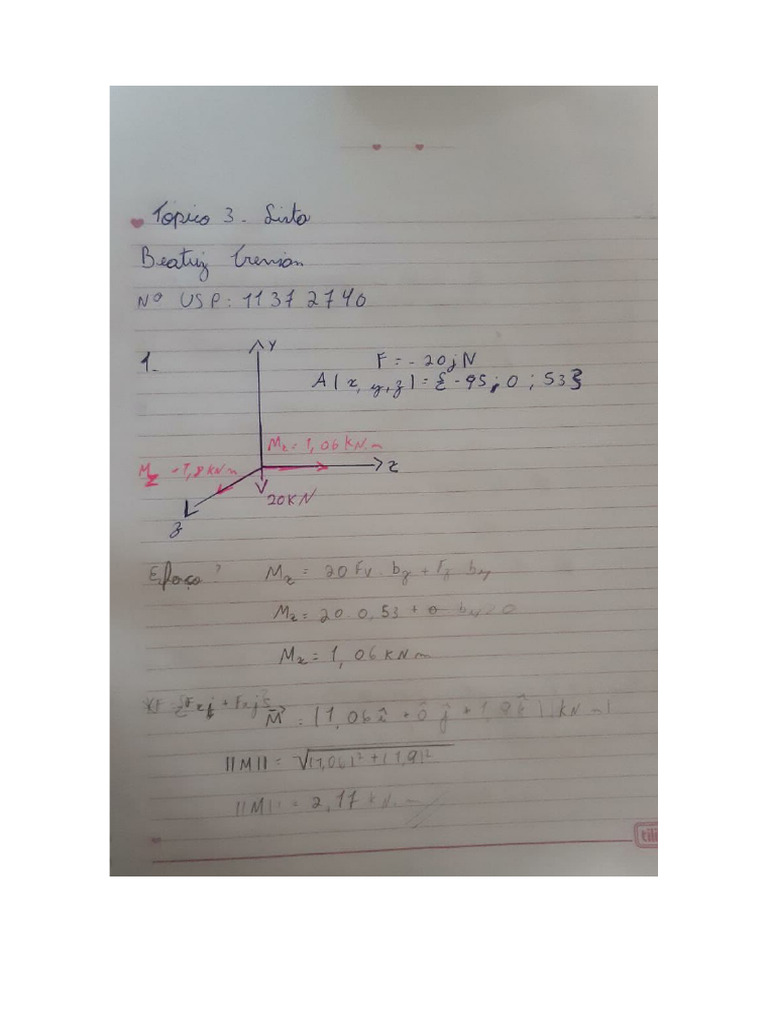 Tópico 3 - Lista
Beatriz
Nº USP: 11372740
1.
Y
F = - 20j N
A(x, y, z) = {-95; 0; 53}
Mx = 1,06 kN.m
Mz = 1,8 kN m
z
20KN
z
Esforço?
Mx = 20 Fy . bz + Fz by
Mx = 20 0,53 + 0 by 0
Mx = 1,06 kN m
M = (1,06 î + 0 ĵ + 1,9 k̂) (kN m)
||M|| = √(1,06)² + (1,9)²
||M|| = 2,17 kN.m
tili